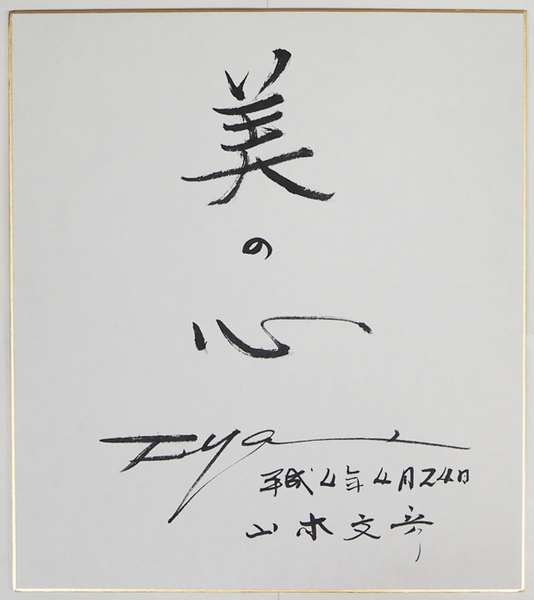 美の心
平成4年4月24日
山本文彦